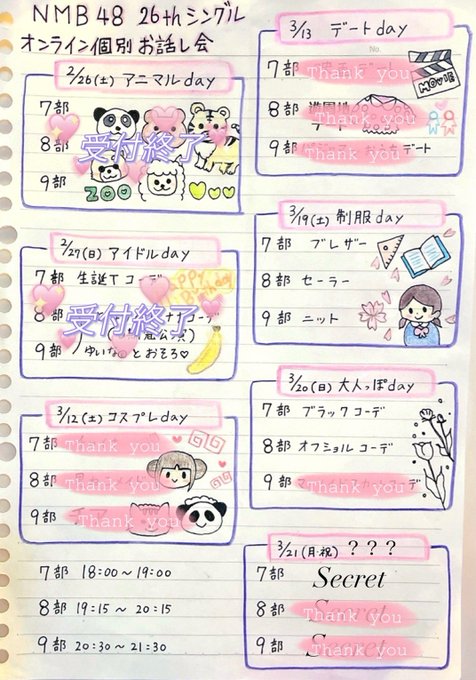 NMB48 26thシングル
オンライン個別お話し会
2/26(土) アニマルday
7部
8部
9部
受付終了
ZOO
2/27(日) アイドルday
7部 生誕Tコーデ
8部
9部 ゆいな とおそろ♡
受付終了
Happy Birthday
3/12(土) コスプレday
7部 Thank you
8部 Thank you
9部 Thank you
7部 18:00～19:00
8部 19:15～20:15
9部 20:30～21:30
3/13 デートday
No.
7部 Thank you デート
8部 Thank you
9部 Thank you デート
MOVIE
3/19(土) 制服day
7部 ブレザー
8部 セーラー
9部 ニット
3/20(日) 大人っぽday
7部 ブラックコーデ
8部 オフショルコーデ
9部 Thank you
3/21(月・祝) ???
7部 Secret
8部 Secret Thank you
9部 Secret Thank you